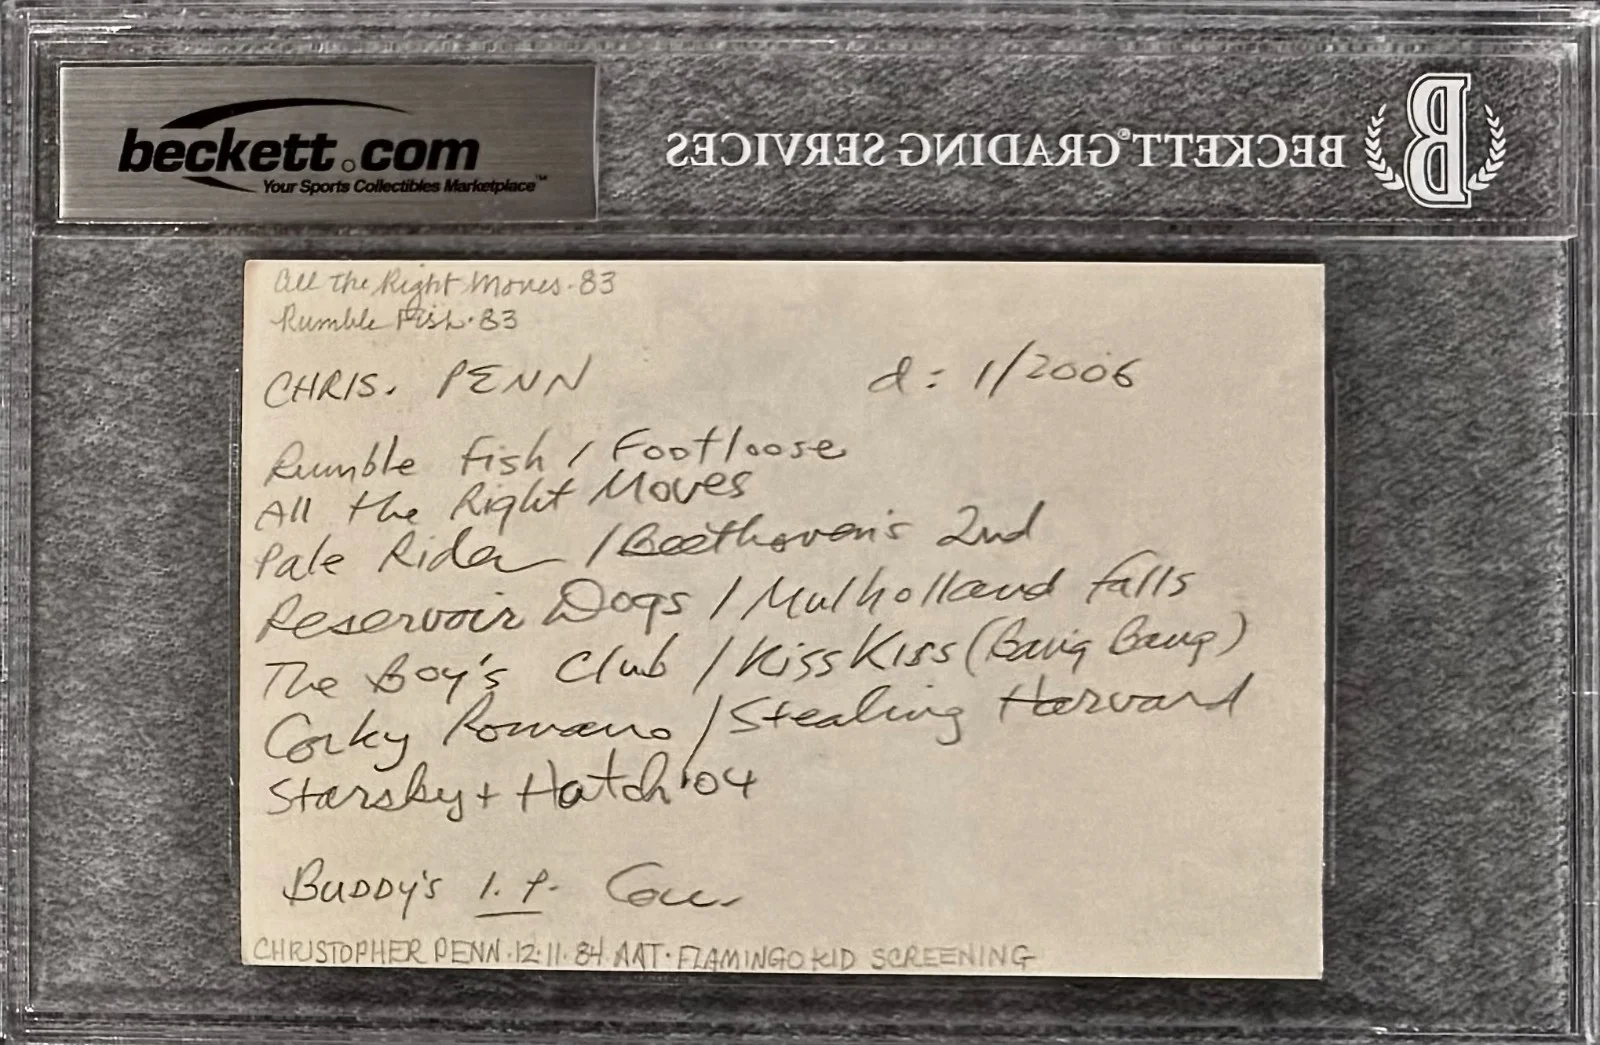 beckett.com
Your Sports Collectibles Marketplace™
BECKETT® GRADING SERVICES
B
All the Right Moves·83
Rumble Fish·83
CHRIS. PENN d: 1/2006
Rumble Fish / Footloose
All the Right Moves
Pale Rider / Beethoven's 2nd
Reservoir Dogs / Mulholland Falls
The Boy's Club / Kiss Kiss (Bang Bang)
Corky Romano / Stealing Harvard
Starsky + Hutch '04
BUDDy's I.P.
CHRISTOPHER PENN·12·11·84 AAT·FLAMINGO KID SCREENING